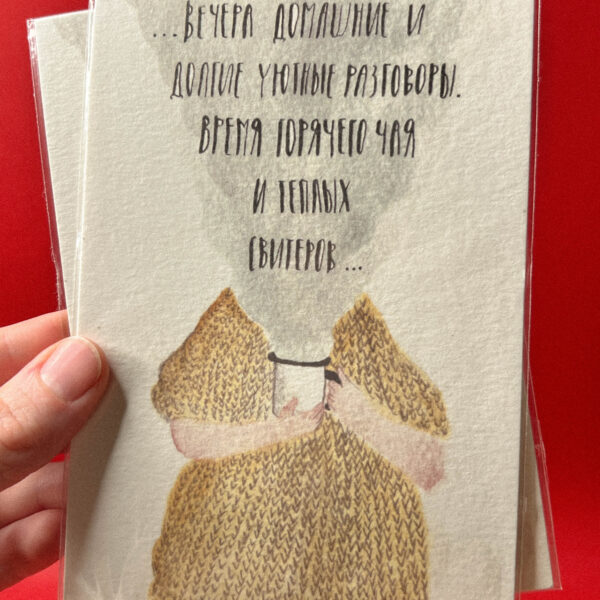 ...ВЕЧЕРА ДОМАШНИЕ И
ДОЛГИЕ УЮТНЫЕ РАЗГОВОРЫ.
ВРЕМЯ ГОРЯЧЕГО ЧАЯ
И ТЕПЛЫХ
СВИТЕРОВ...